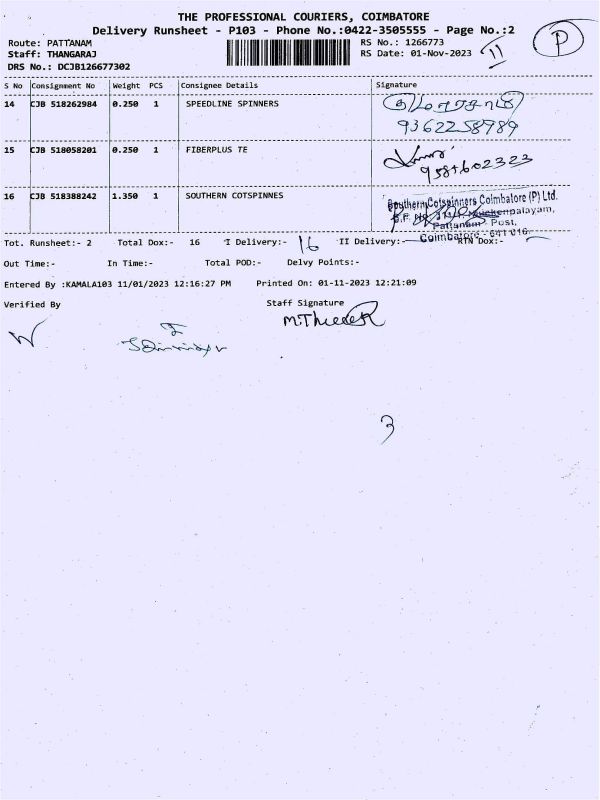 THE PROFESSIONAL COURIERS, COIMBATORE
Delivery Runsheet - P103 - Phone No.:0422-3505555 - Page No.:2
Route: PATTANAM RS No.: 1266773
Staff: THANGARAJ RS Date: 01-Nov-2023 11 P
DRS No.: DCJB126677302
S No Consignment No Weight PCS Consignee Details Signature
14 CJB 518262984 0.250 1 SPEEDLINE SPINNERS
9362258989
15 CJB 518058201 0.250 1 FIBERPLUS TE
16 CJB 518388242 1.350 1 SOUTHERN COTSPINNES
Southern Cotspinners Coimbatore (P) Ltd.
Pattanam Post,
Coimbatore - 641 016.
Tot. Runsheet:- 2 Total Dox:- 16 I Delivery:- 16 II Delivery:- RTN Dox:-
Out Time:- In Time:- Total POD:- Delvy Points:-
Entered By :KAMALA103 11/01/2023 12:16:27 PM Printed On: 01-11-2023 12:21:09
Verified By Staff Signature
3